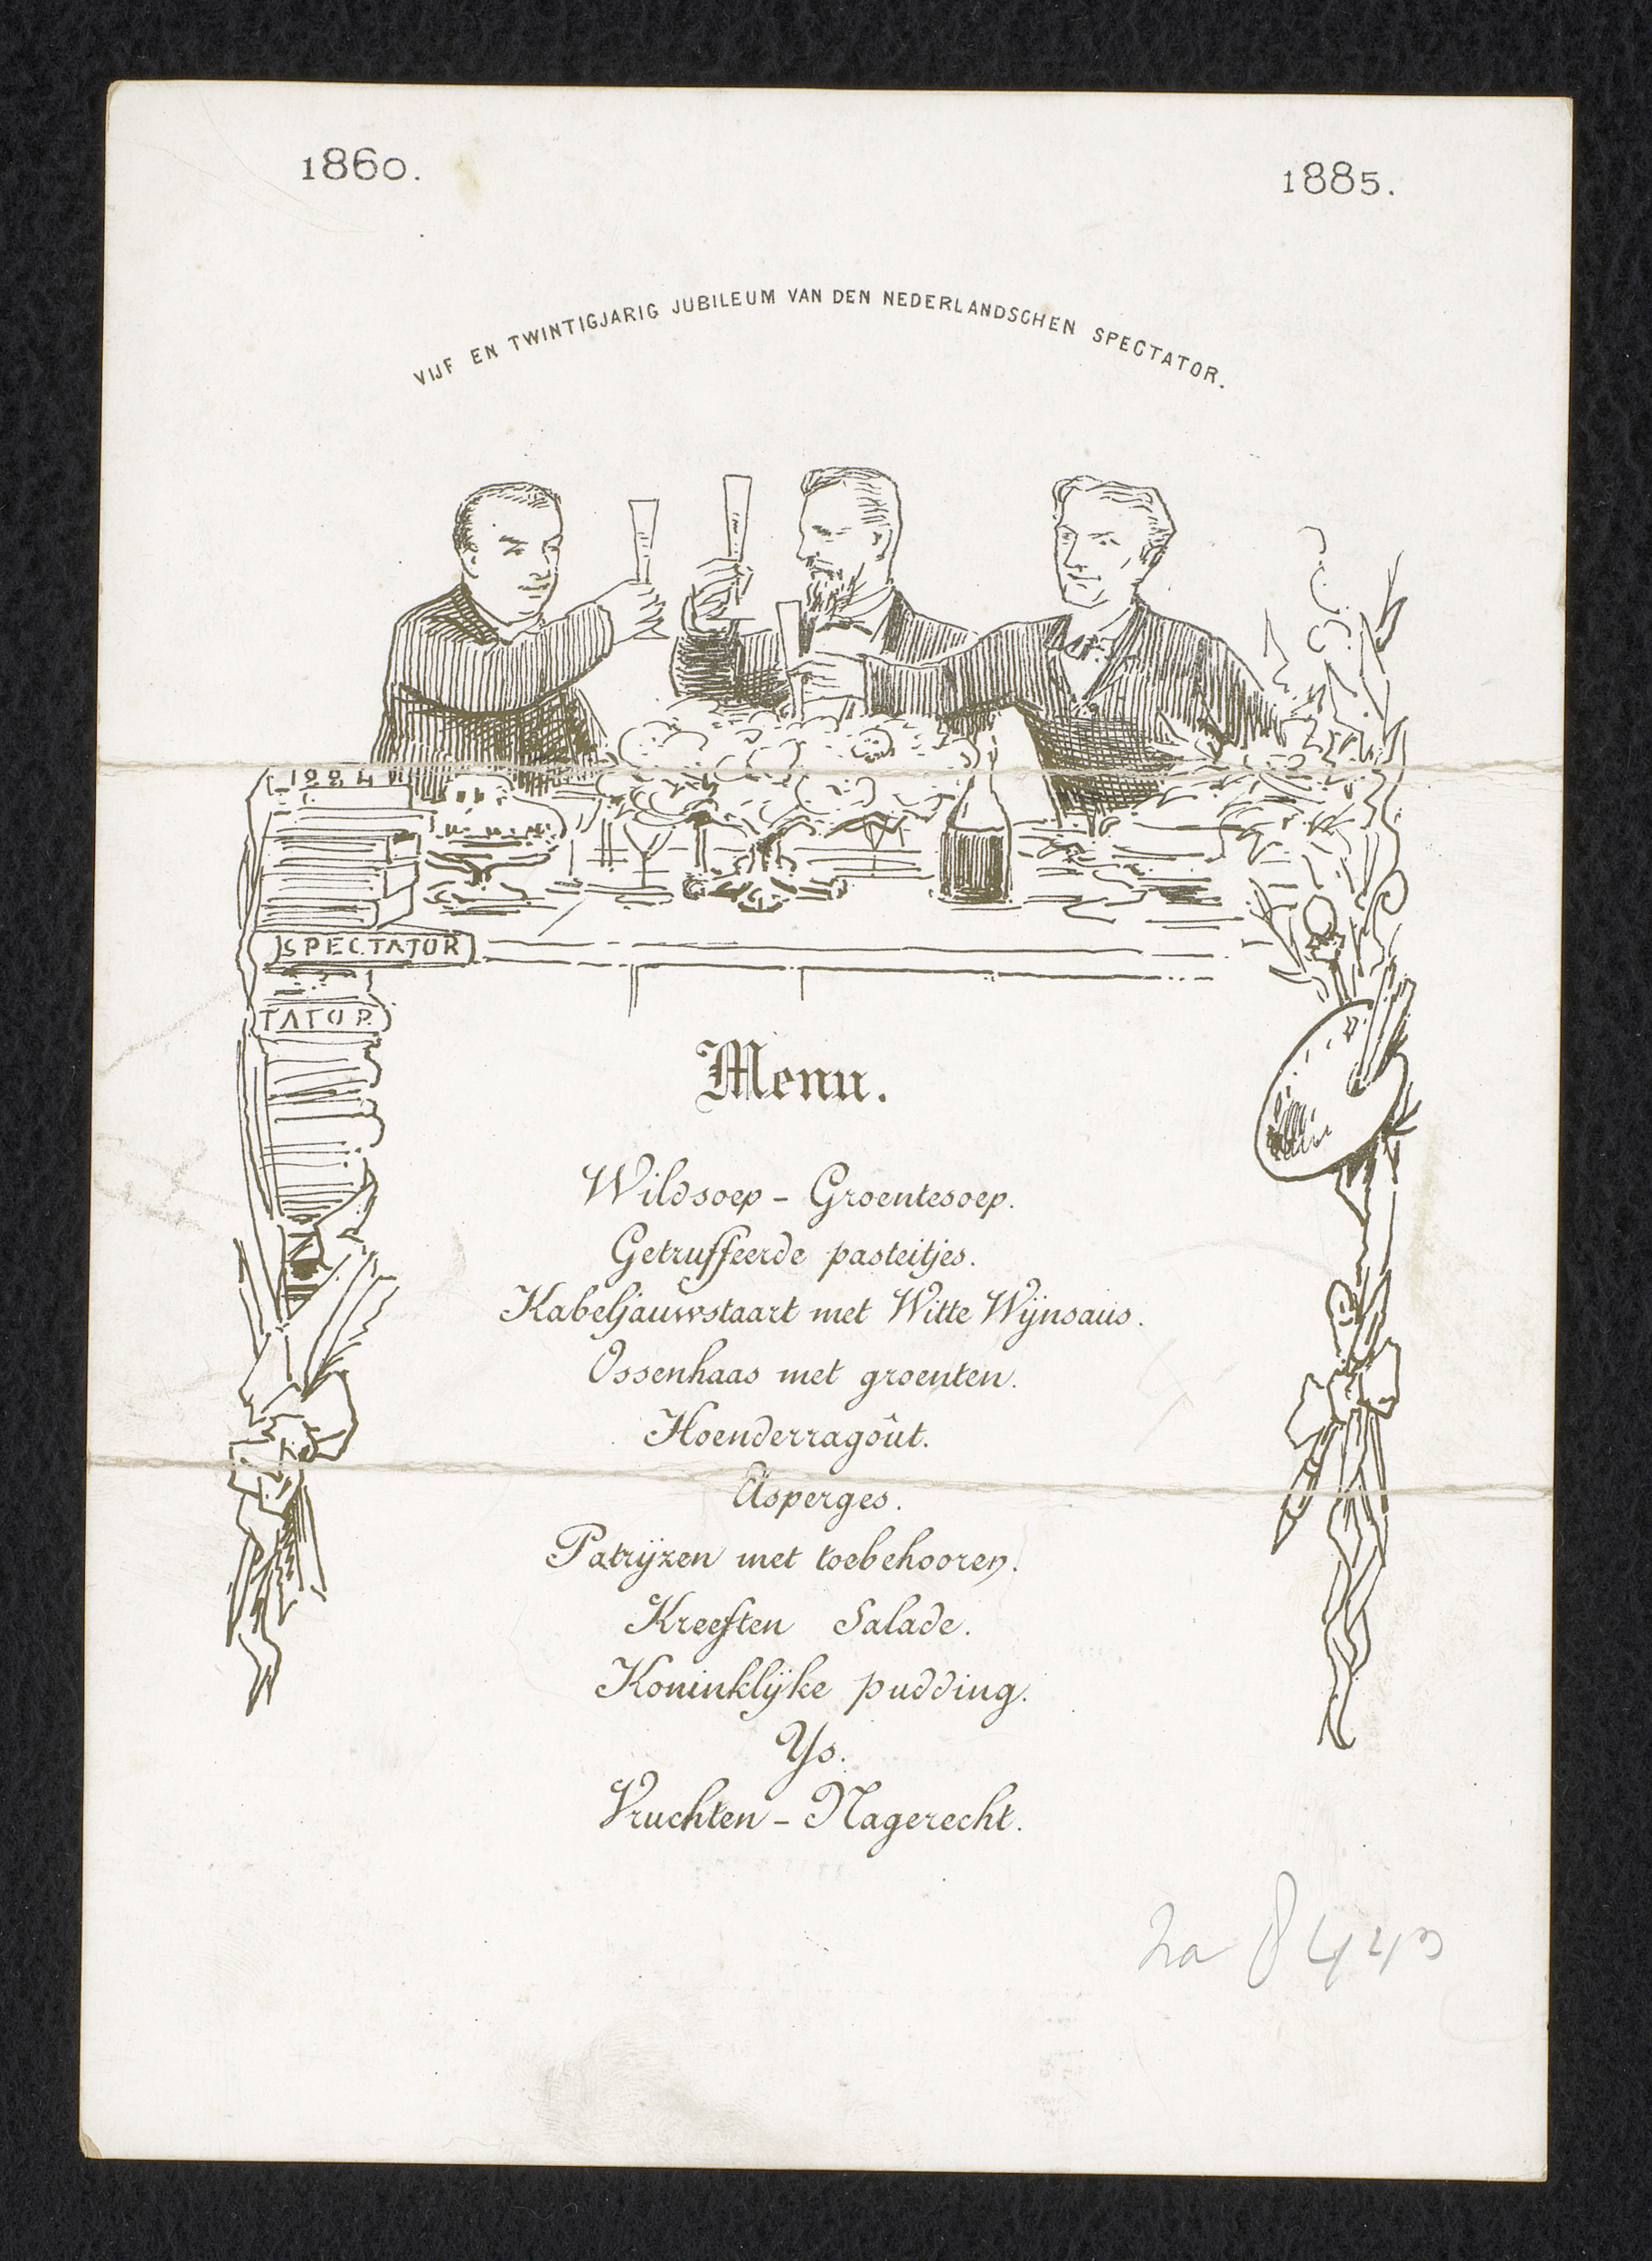 1860.
1885.
VIJF EN TWINTIGJARIG JUBILEUM VAN DEN NEDERLANDSCHEN SPECTATOR.
SPECTATOR
TATOR
Menu.
Wildsoep - Groentesoep.
Getruffeerde pasteitjes.
Kabeljauwstaart met Witte Wijnsaus.
Ossenhaas met groenten.
Hoenderragoût.
Asperges.
Patrijzen met toebehooren.
Kreeften Salade.
Koninklijke pudding.
Ys.
Vruchten - Nagerecht.